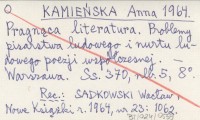 O KAMIEŃSKA Anna 1964.
Pragnąca literatura. Problemy
pisarstwa ludowego i nurtu lu-
dowego poezji współczesnej. –
Warszawa. Ss. 370, nlb. 5, 8°.
Rec.: SADKOWSKI Wacław,
Nowe Książki r. 1964, nr 23: 1062.